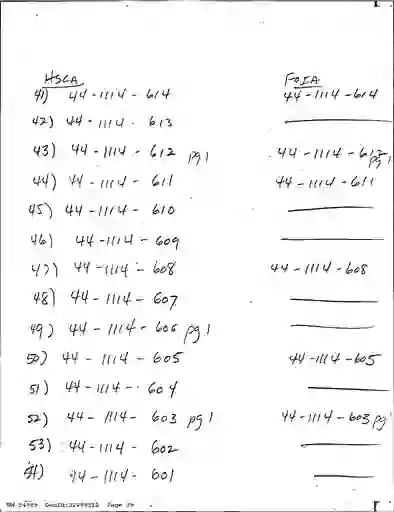 HSCA FOIA
41) 44-1114-614 44-1114-614
42) 44-1114-613
43) 44-1114-612 pg 1 44-1114-612 pg 1
44) 44-1114-611 44-1114-611
45) 44-1114-610
46) 44-1114-609
47) 44-1114-608 44-1114-608
48) 44-1114-607
49) 44-1114-606 pg 1
50) 44-1114-605 44-1114-605
51) 44-1114-604
52) 44-1114-603 pg 1 44-1114-603 pg
53) 44-1114-602
54) 44-1114-601
Page